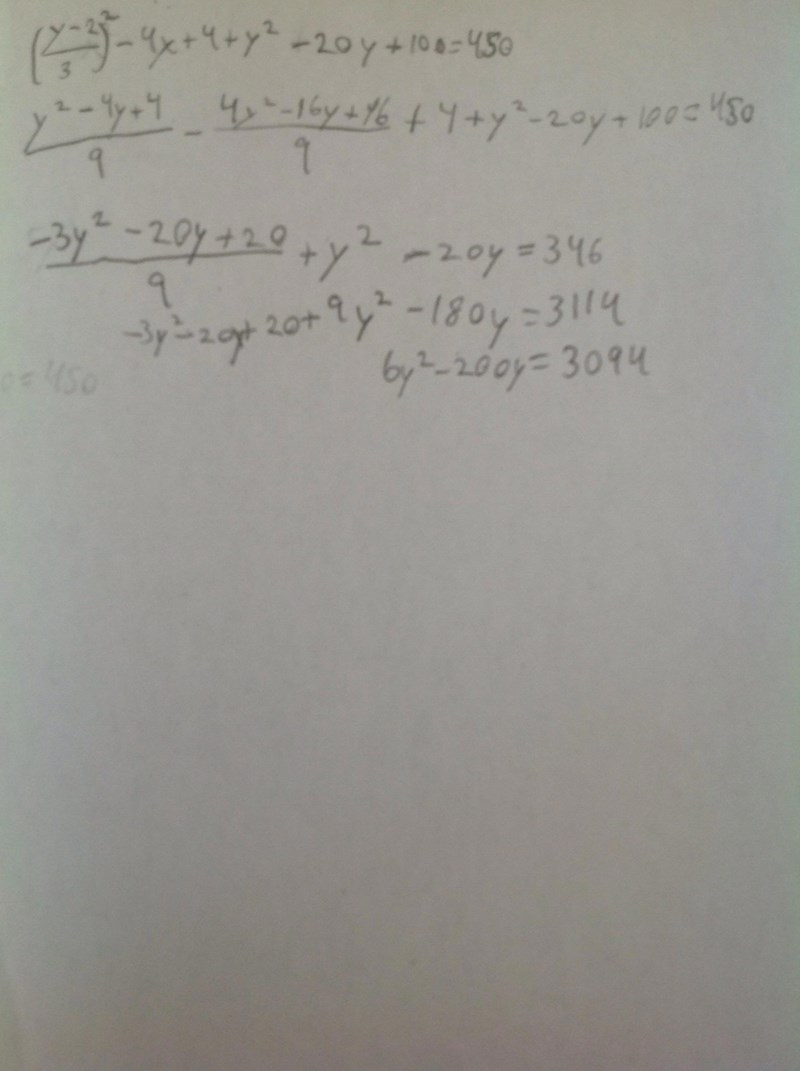 ((y-2)/3)² - 4x + 4 + y² - 20y + 100 = 450
(y² - 4y + 4)/9 - (4y² - 16y + 16)/9 + 4 + y² - 20y + 100 = 450
(-3y² - 20y + 20)/9 + y² - 20y = 346
-3y² - 20y + 20 + 9y² - 180y = 3114
6y² - 200y = 3094
= 450